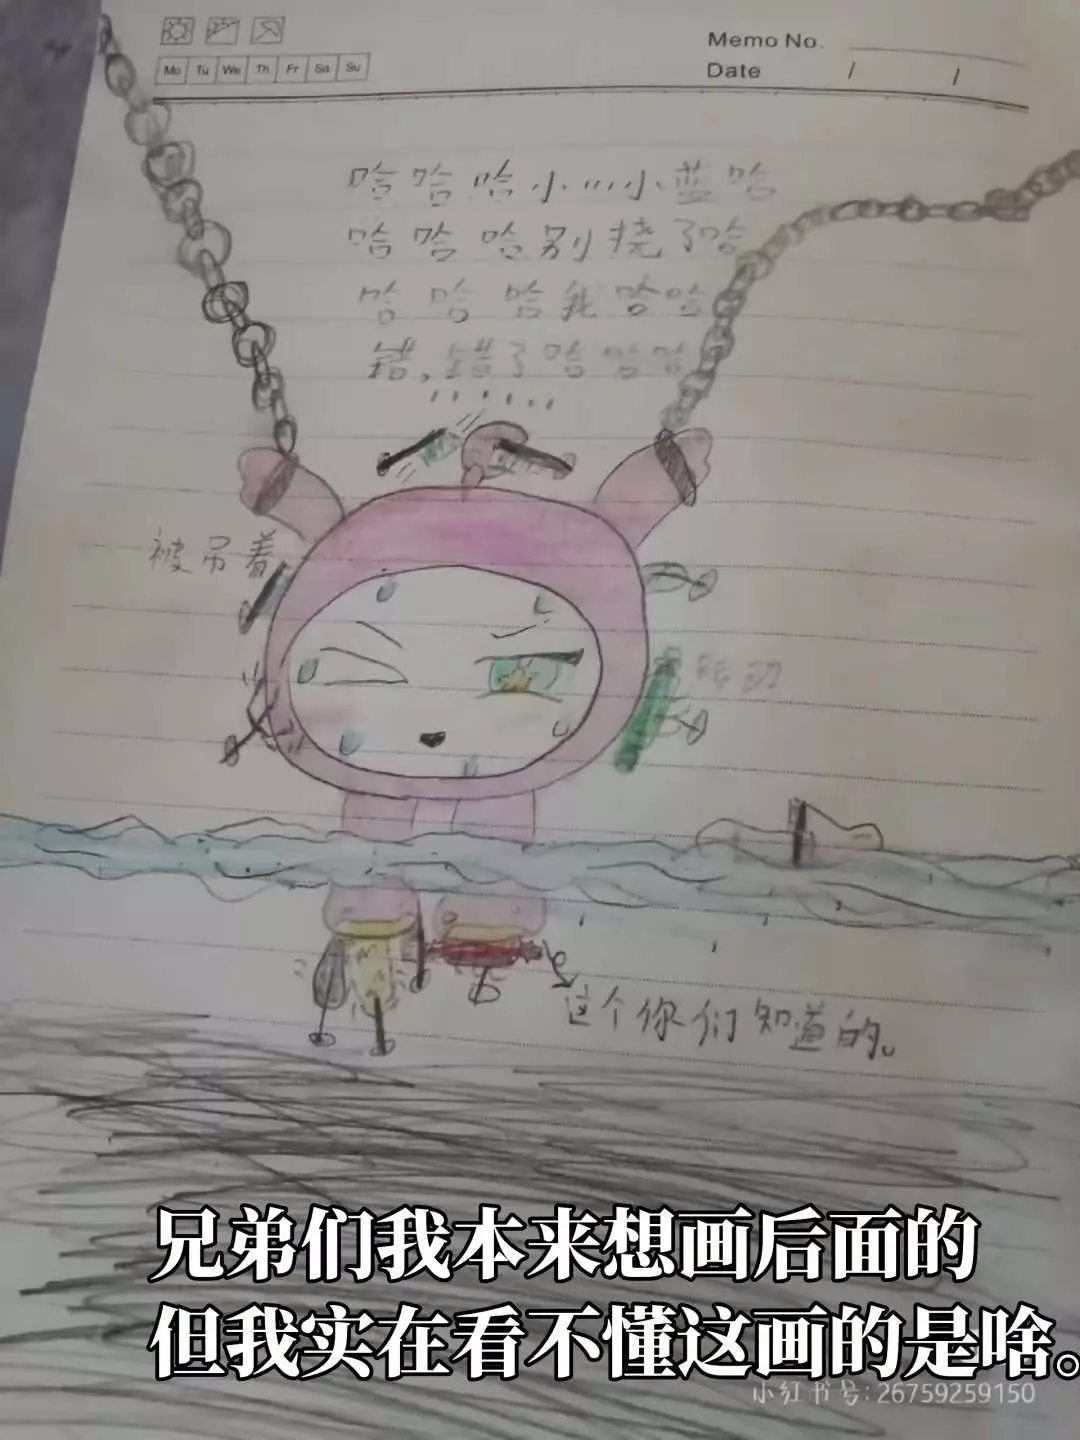 Memo No.
Date / /
Mo Tu We Th Fr Sa Su
哈哈哈小小蓝哈
哈哈哈别挠了哈
哈哈哈我哈哈
错,错了哈哈哈
......
被吊着
转动
这个你们知道的。
兄弟们我本来想画后面的
但我实在看不懂这画的是啥。
小红书号:26759259150